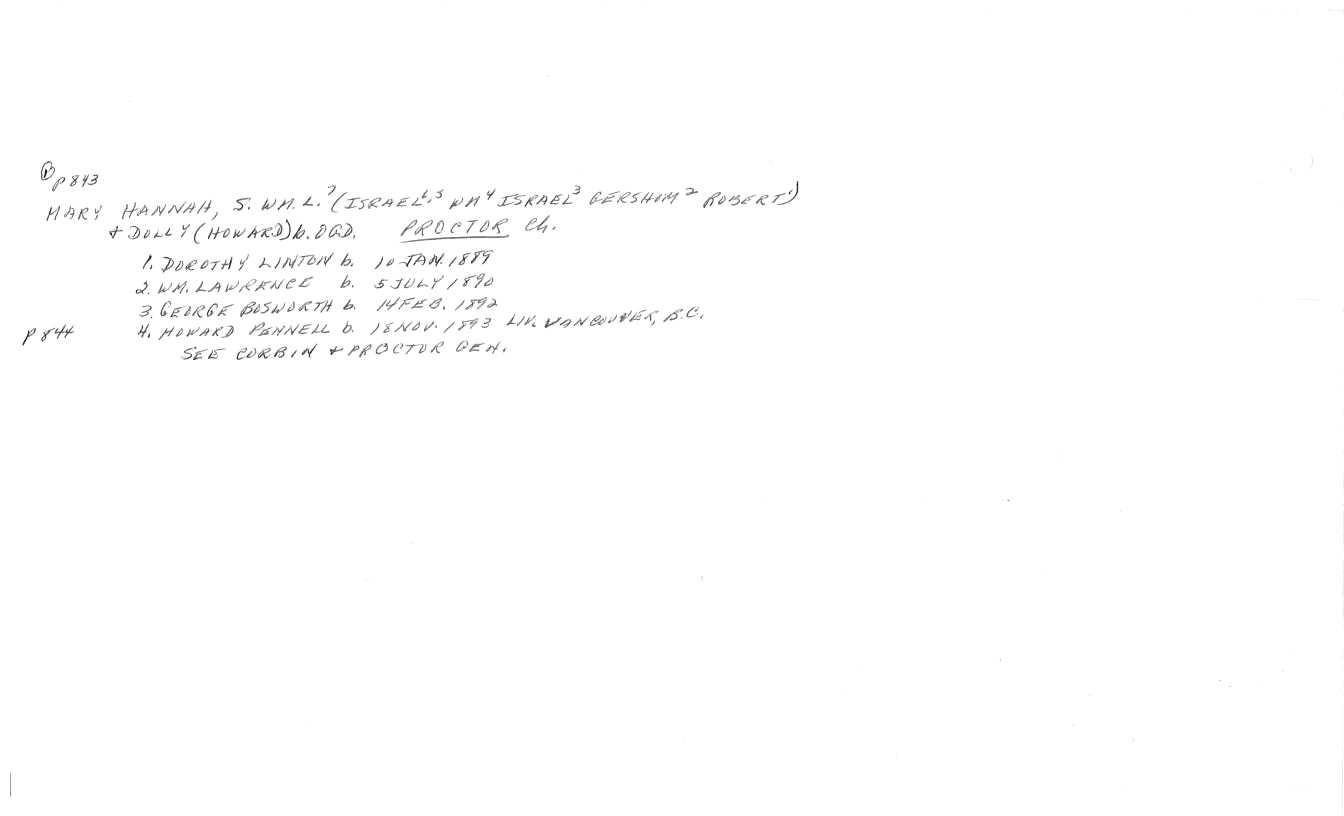 ① p 843
MARY HANNAH, S. WM. L.⁷ (ISRAEL⁶,⁵ WM⁴ ISRAEL³ GERSHOM² ROBERT¹)
+ DOLLY (HOWARD) b. OGD. PROCTOR Ch.
1. DOROTHY LINTON b. 10 JAN. 1889
2. WM. LAWRENCE b. 5 JULY 1890
3. GEORGE BOSWORTH b. 14 FEB. 1892
p 844 4. HOWARD PENNELL b. 18 NOV. 1893 LIV. VANCOUVER, B.C.
SEE CORBIN + PROCTOR GEN.